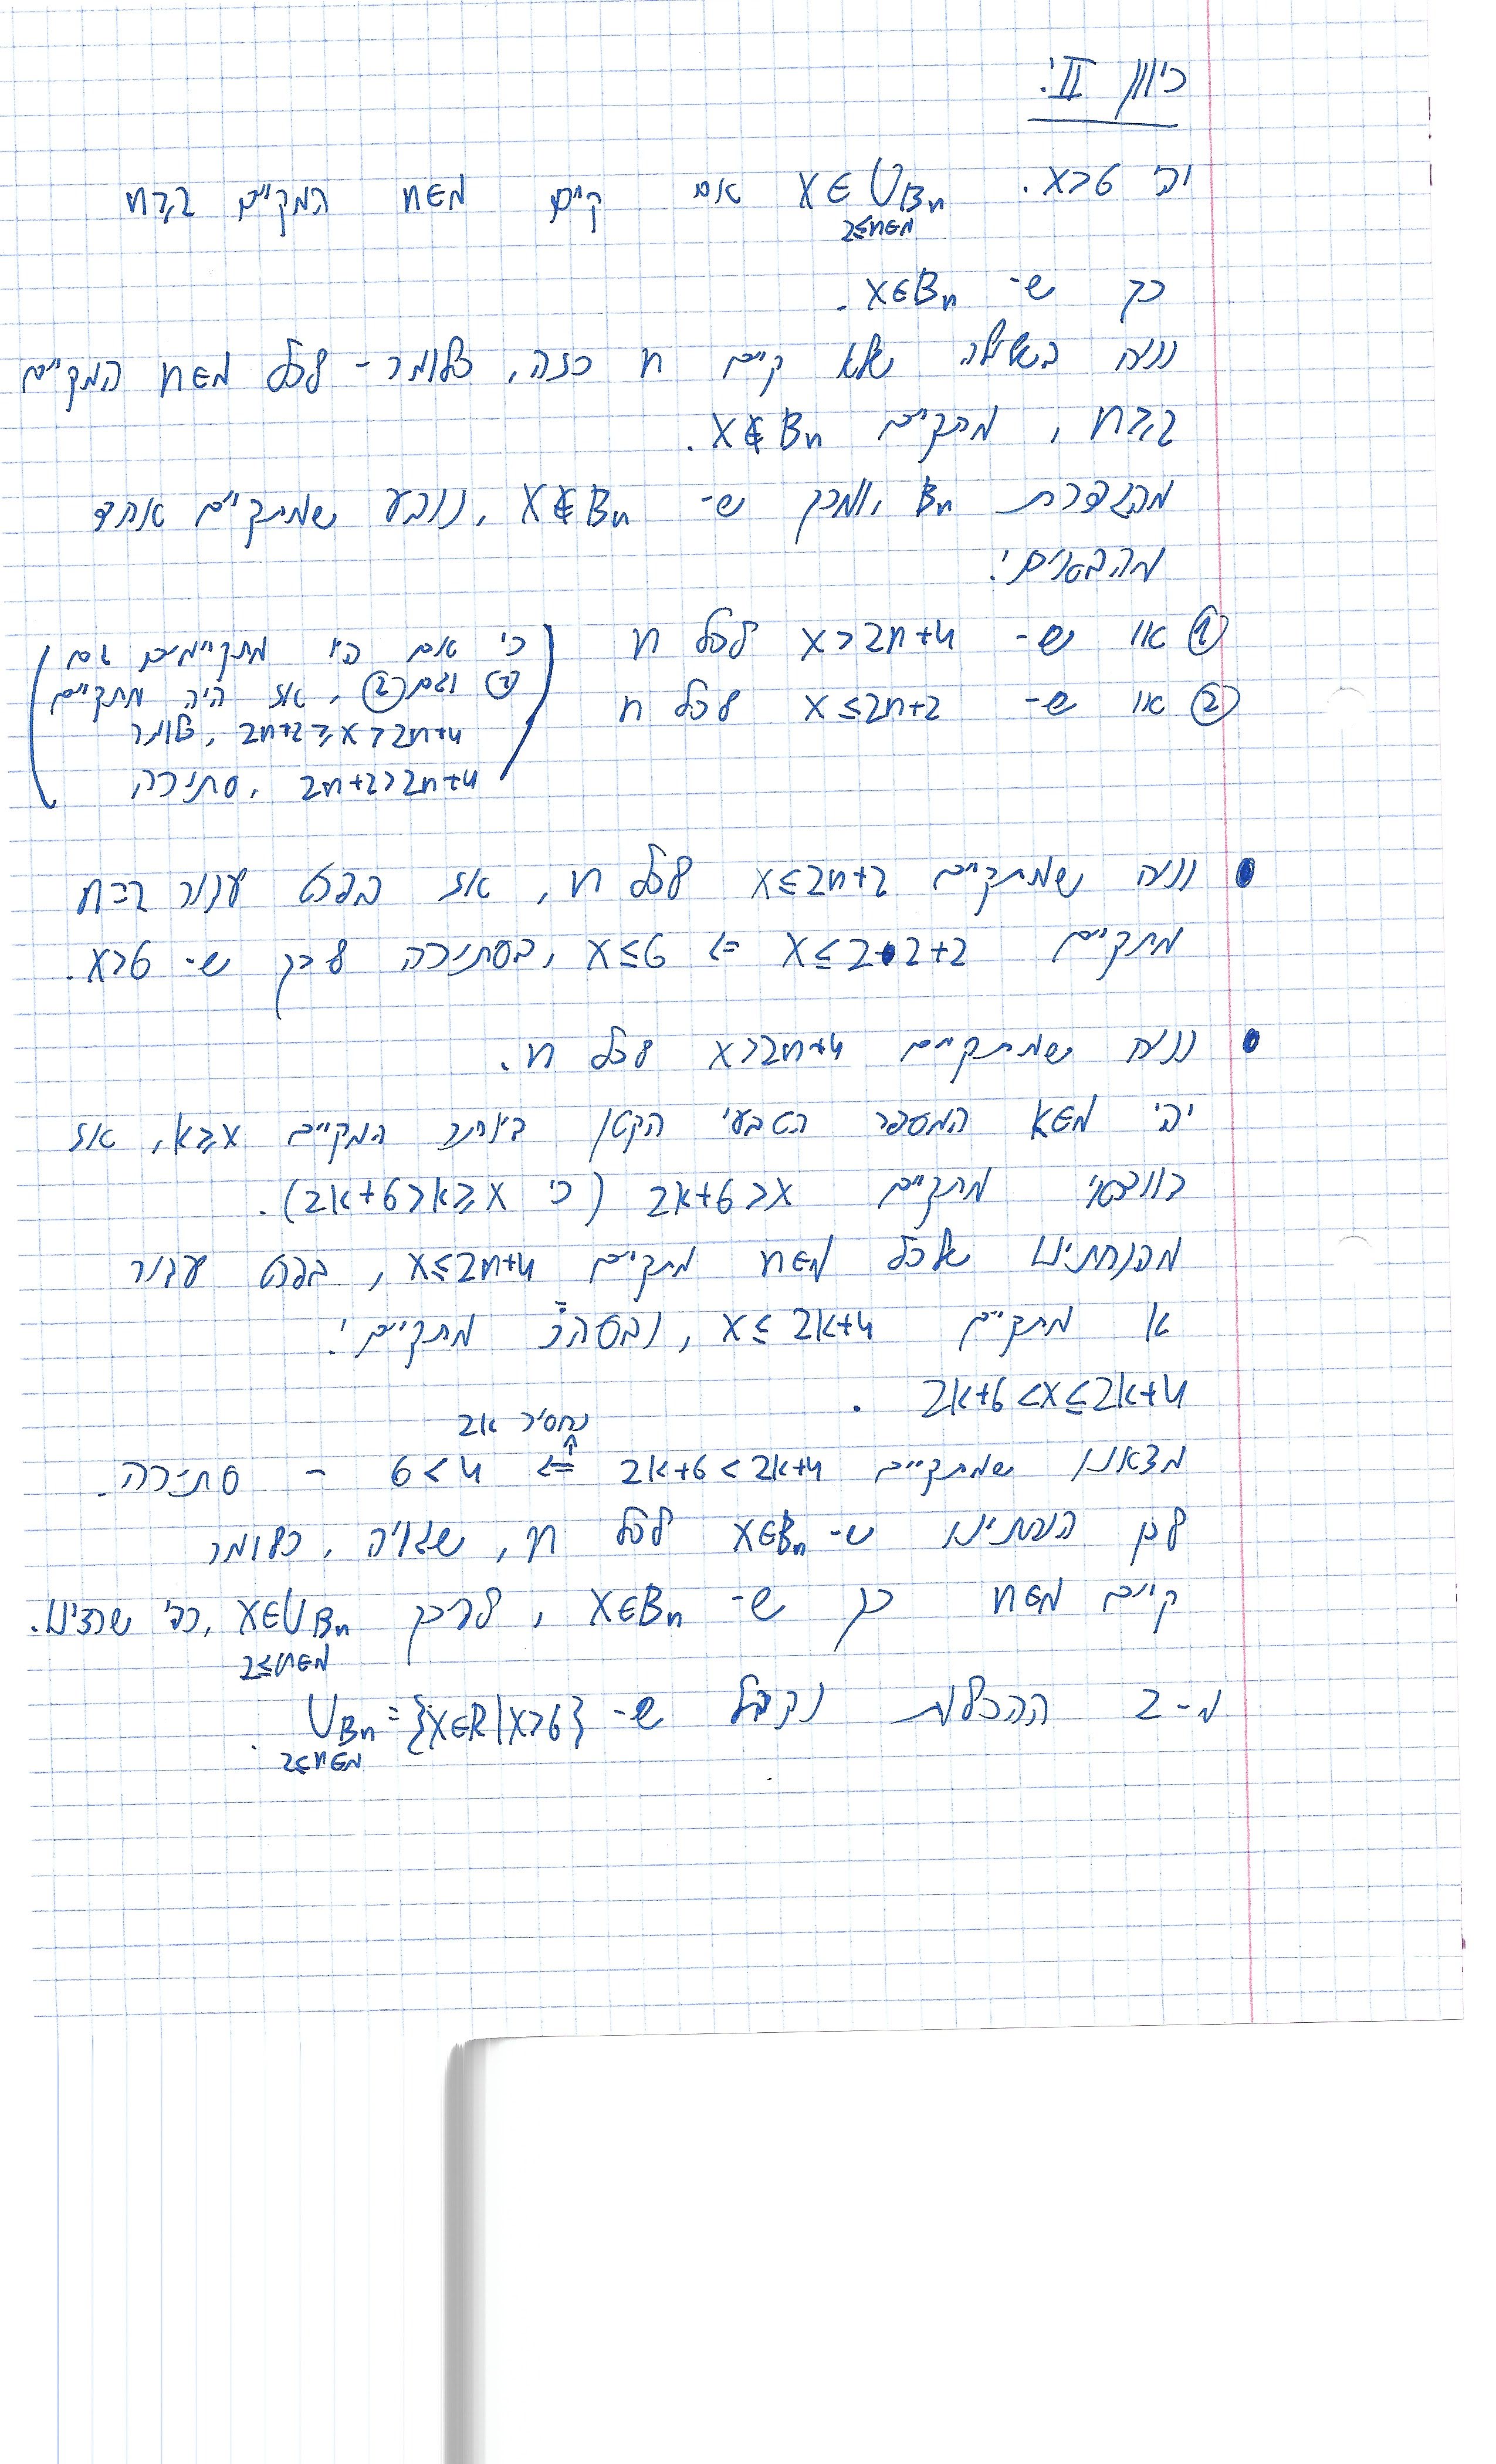 כיוון II:
יהי x>6. x∈∪Bₙ אם קיים n∈ℕ המקיים n≥2
2≤n∈ℕ
כך ש- x∈Bₙ.
נניח בשלילה שלא קיים n כזה, כלומר - לכל n∈ℕ המקיים
n≥2, מתקיים x∉Bₙ.
מהגדרת Bₙ, ומכך ש- x∉Bₙ, נובע שמתקיים אחד
מהבאים:
① או ש- x>2n+4 לכל n
② או ש- x≤2n+2 לכל n
(כי אם היו מתקיימים גם
① וגם ②, אז היה מתקיים
2n+2≥x>2n+4, כלומר
2n+2>2n+4, סתירה)
• נניח שמתקיים x≤2n+2 לכל n, אז בפרט עבור n=2
מתקיים x≤2•2+2 => x≤6, בסתירה לכך ש- x>6.
• נניח שמתקיים x>2n+4 לכל n.
יהי k∈ℕ המספר הטבעי הקטן ביותר המקיים k≥x, אז
בוודאי מתקיים 2k+6>x (כי 2k+6>k≥x).
מהנחתינו שלכל n∈ℕ מתקיים x≤2n+4, בפרט עבור
k מתקיים x≤2k+4, ובסה"כ מתקיים:
2k+6<x≤2k+4.
נחסיר 2k
מצאנו שמתקיים 2k+6<2k+4 => 6<4 - סתירה.
לכן הנחתינו ש- x∈Bₙ לכל n, שגויה, כלומר
קיים n∈ℕ כך ש- x∈Bₙ, ולכן x∈∪Bₙ, כפי שרצינו.
2≤n∈ℕ
מ-2 ההכלות נקבל ש- ∪Bₙ={x∈R|x>6}.
2≤n∈ℕ